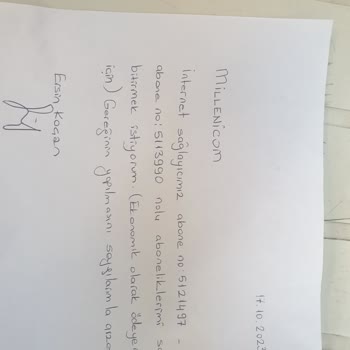 17.10.202
MİLLENİCOM
İnternet sağlayıcımız abone no 5121497 -
abone no: 5113990 nolu aboneliklerimi s
bitirmek istiyorum. (Ekonomik olarak ödeye
için) Gereğinin yapılmasını saygılarımla
Ersin Koçan